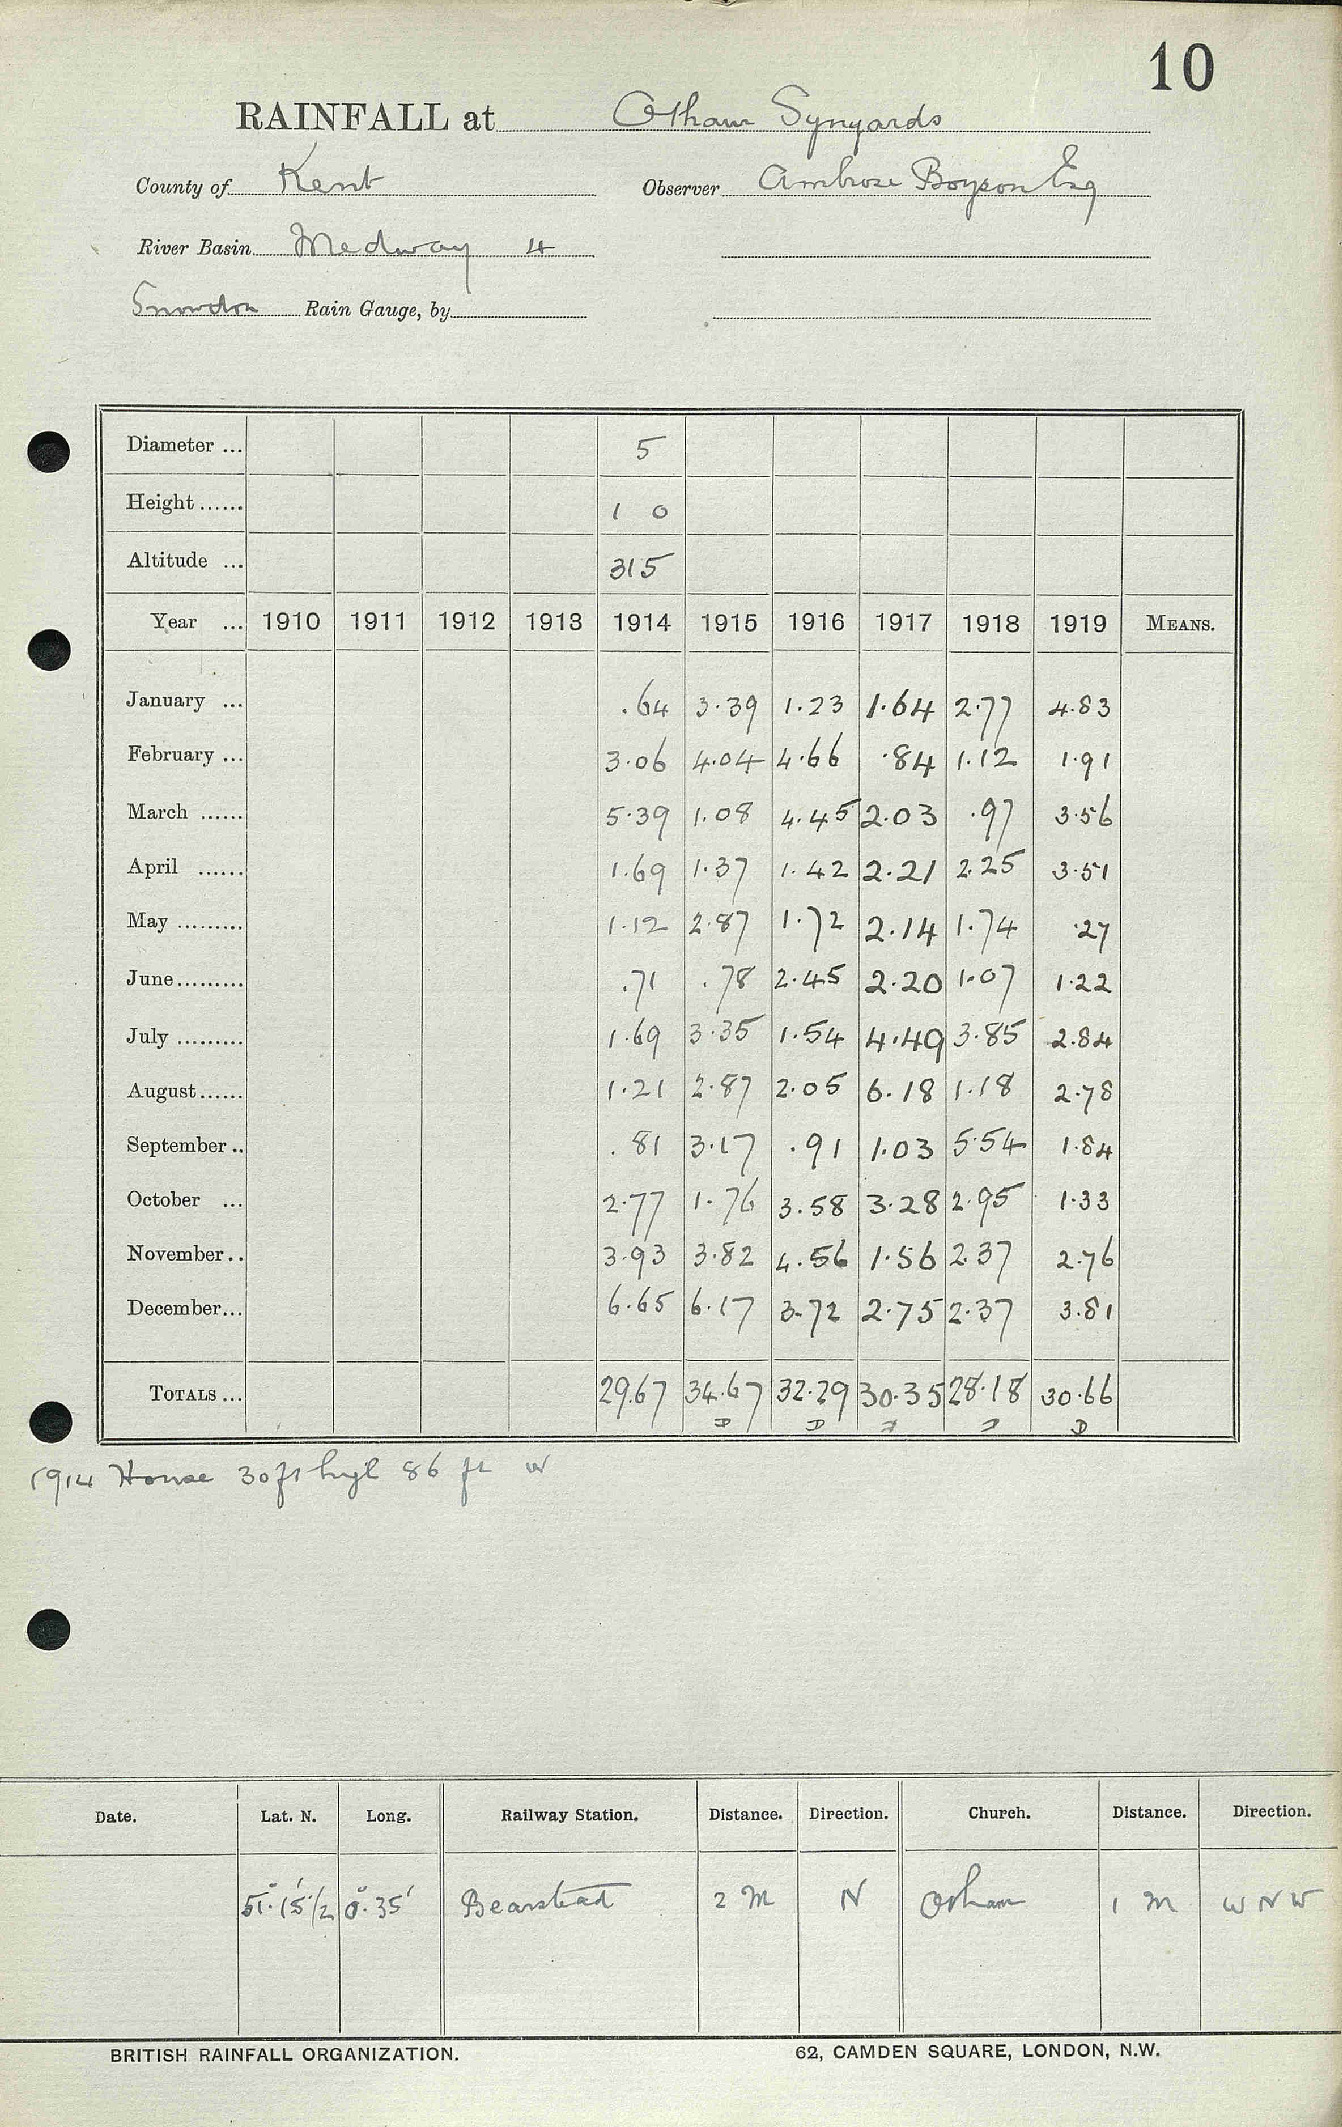 10
RAINFALL at Otham Synyards
County of Kent Observer Ambrose Boyson Esq
River Basin Medway 4
Snowdon Rain Gauge, by
Diameter ... 5
Height ...... 1 0
Altitude ... 315
Year ... 1910 1911 1912 1913 1914 1915 1916 1917 1918 1919 MEANS.
January ... .64 3.39 1.23 1.64 2.77 4.83
February ... 3.06 4.04 4.66 .84 1.12 1.91
March ...... 5.39 1.08 4.45 2.03 .97 3.56
April ...... 1.69 1.37 1.42 2.21 2.25 3.51
May ......... 1.12 2.87 1.72 2.14 1.74 .27
June ......... .71 .78 2.45 2.20 1.07 1.22
July ......... 1.69 3.35 1.54 4.49 3.85 2.84
August ...... 1.21 2.87 2.05 6.18 1.18 2.78
September .. .81 3.17 .91 1.03 5.54 1.84
October ... 2.77 1.76 3.58 3.28 2.95 1.33
November .. 3.93 3.82 4.56 1.56 2.37 2.76
December ... 6.65 6.17 3.72 2.75 2.37 3.81
TOTALS ... 29.67 34.67 32.29 30.35 28.18 30.66
1914 House 30 ft high 86 ft W
Date. Lat. N. Long. Railway Station. Distance. Direction. Church. Distance. Direction.
51° 15' 1/2 0° 35' Bearstead 2 M N Otham 1 M W N W
BRITISH RAINFALL ORGANIZATION. 62, CAMDEN SQUARE, LONDON, N.W.